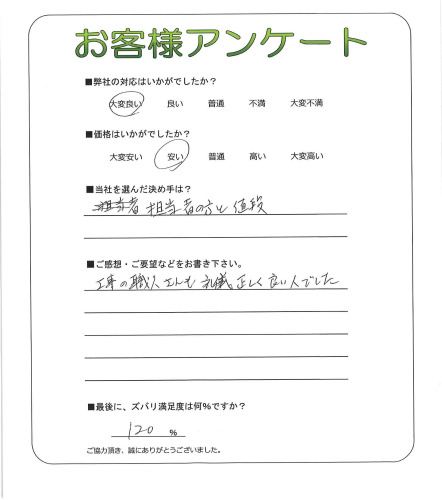 お客様アンケート
■弊社の対応はいかがでしたか？
大変良い 良い 普通 不満 大変不満
■価格はいかがでしたか？
大変安い 安い 普通 高い 大変高い
■当社を選んだ決め手は？
担当者 担当者の方と値段
■ご感想・ご要望などをお書き下さい。
工事の職人さんも礼儀正しく良い人でした
■最後に、ズバリ満足度は何%ですか？
120 %
ご協力頂き、誠にありがとうございました。